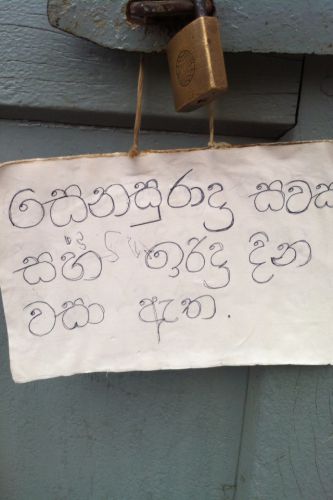 සෙනසුරාදු සවස
සහ ඉරිදු දින
වසා ඇත.